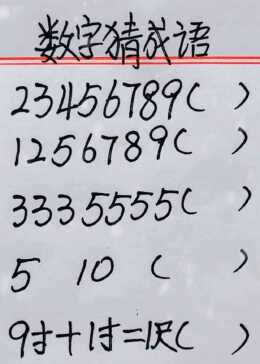 数字猜成语
23456789( )
1256789( )
3335555( )
5 10 ( )
9寸+1寸=1尺( )